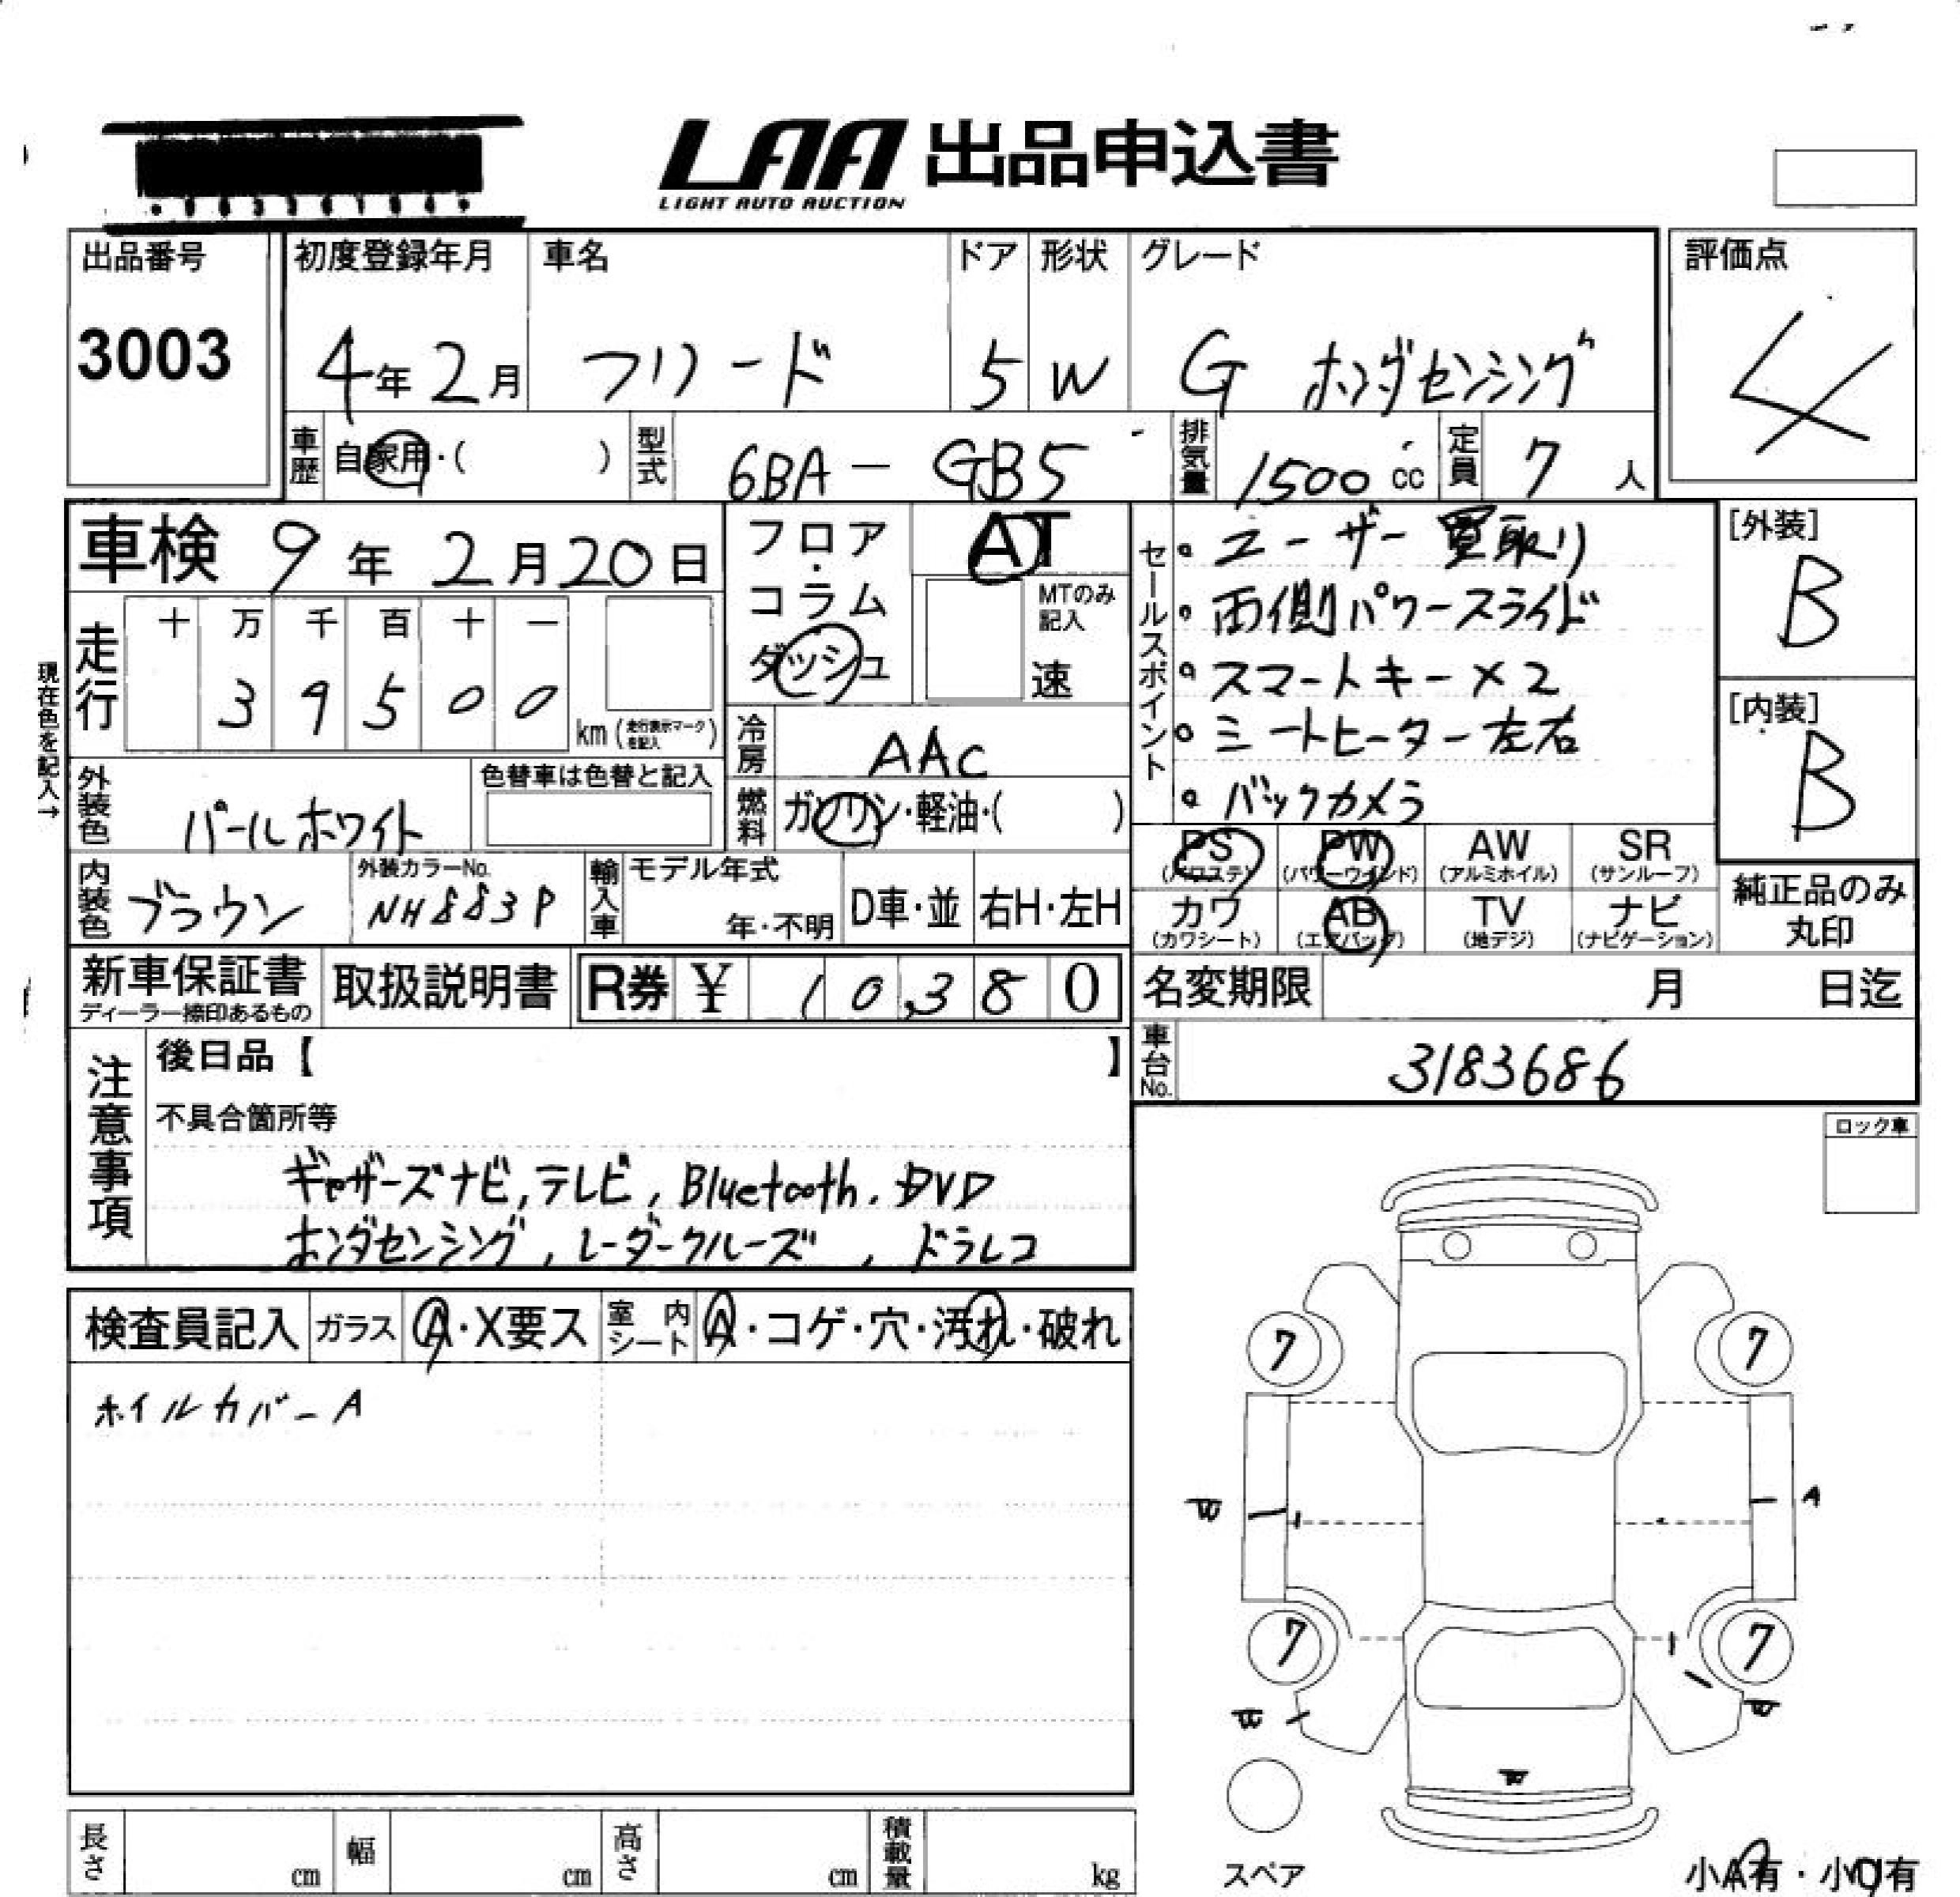 LAA 出品申込書
LIGHT AUTO AUCTION
出品番号
3003
初度登録年月
4年2月
車名
フリード
ドア
5
形状
W
グレード
G ホンダセンシング
評価点
4
車歴
自家用・( )
型式
6BA - GB5
排気量
1500 cc
定員
7 人
車検 9年 2月20日
フロア・コラム・ダッシュ
AT
MTのみ記入
速
セールスポイント
・ユーザー買取り
・両側パワースライド
・スマートキー×2
・シートヒーター左右
・バックカメラ
[外装]
B
[内装]
B
現在色を記入→
走行
十 万 千 百 十 一
3 9 5 0 0
km(走行表示マークを記入)
冷房
AAC
燃料
ガソリン・軽油・( )
外装色
パールホワイト
色替車は色替と記入
内装色
ブラウン
外装カラーNo.
NH883P
輸入車
モデル年式
年・不明
D車・並
右H・左H
PS
(パワステ)
PW
(パワーウインド)
AW
(アルミホイル)
SR
(サンルーフ)
カワ
(カワシート)
AB
(エアバッグ)
TV
(地デジ)
ナビ
(ナビゲーション)
純正品のみ
丸印
新車保証書
ディーラー捺印あるもの
取扱説明書
R券 ¥ 10,380
名変期限 月 日迄
車台No.
3183686
注意事項
後日品【 】
不具合箇所等
ギャザーズナビ, テレビ, Bluetooth, DVD
ホンダセンシング, レーダークルーズ, ドラレコ
ロック車
検査員記入
ガラス
A・X要ス
室内シート
A・コゲ・穴・汚れ・破れ
ホイルカバーA
7
7
W
A
7
7
W
W
W
スペア
小A有・小U有
長さ cm
幅 cm
高さ cm
積載量 kg